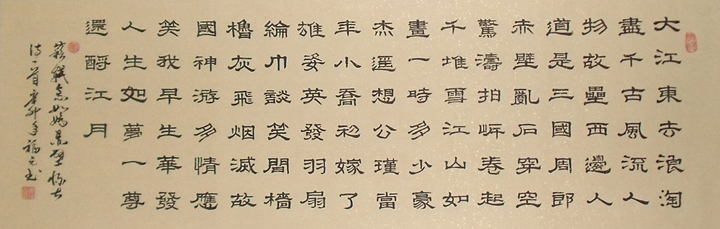 大江東去浪淘
盡千古風流人
物故壘西邊人
道是三國周郎
赤壁亂石穿空
驚濤拍岸卷起
千堆雪江山如
畫一時多少豪
杰遥想公瑾當
年小喬初嫁了
雄姿英發羽扇
綸巾談笑間檣
櫓灰飛烟滅故
國神游多情應
笑我早生華發
人生如夢一尊
還酹江月
蘇軾念奴嬌赤壁懷古
詩一首